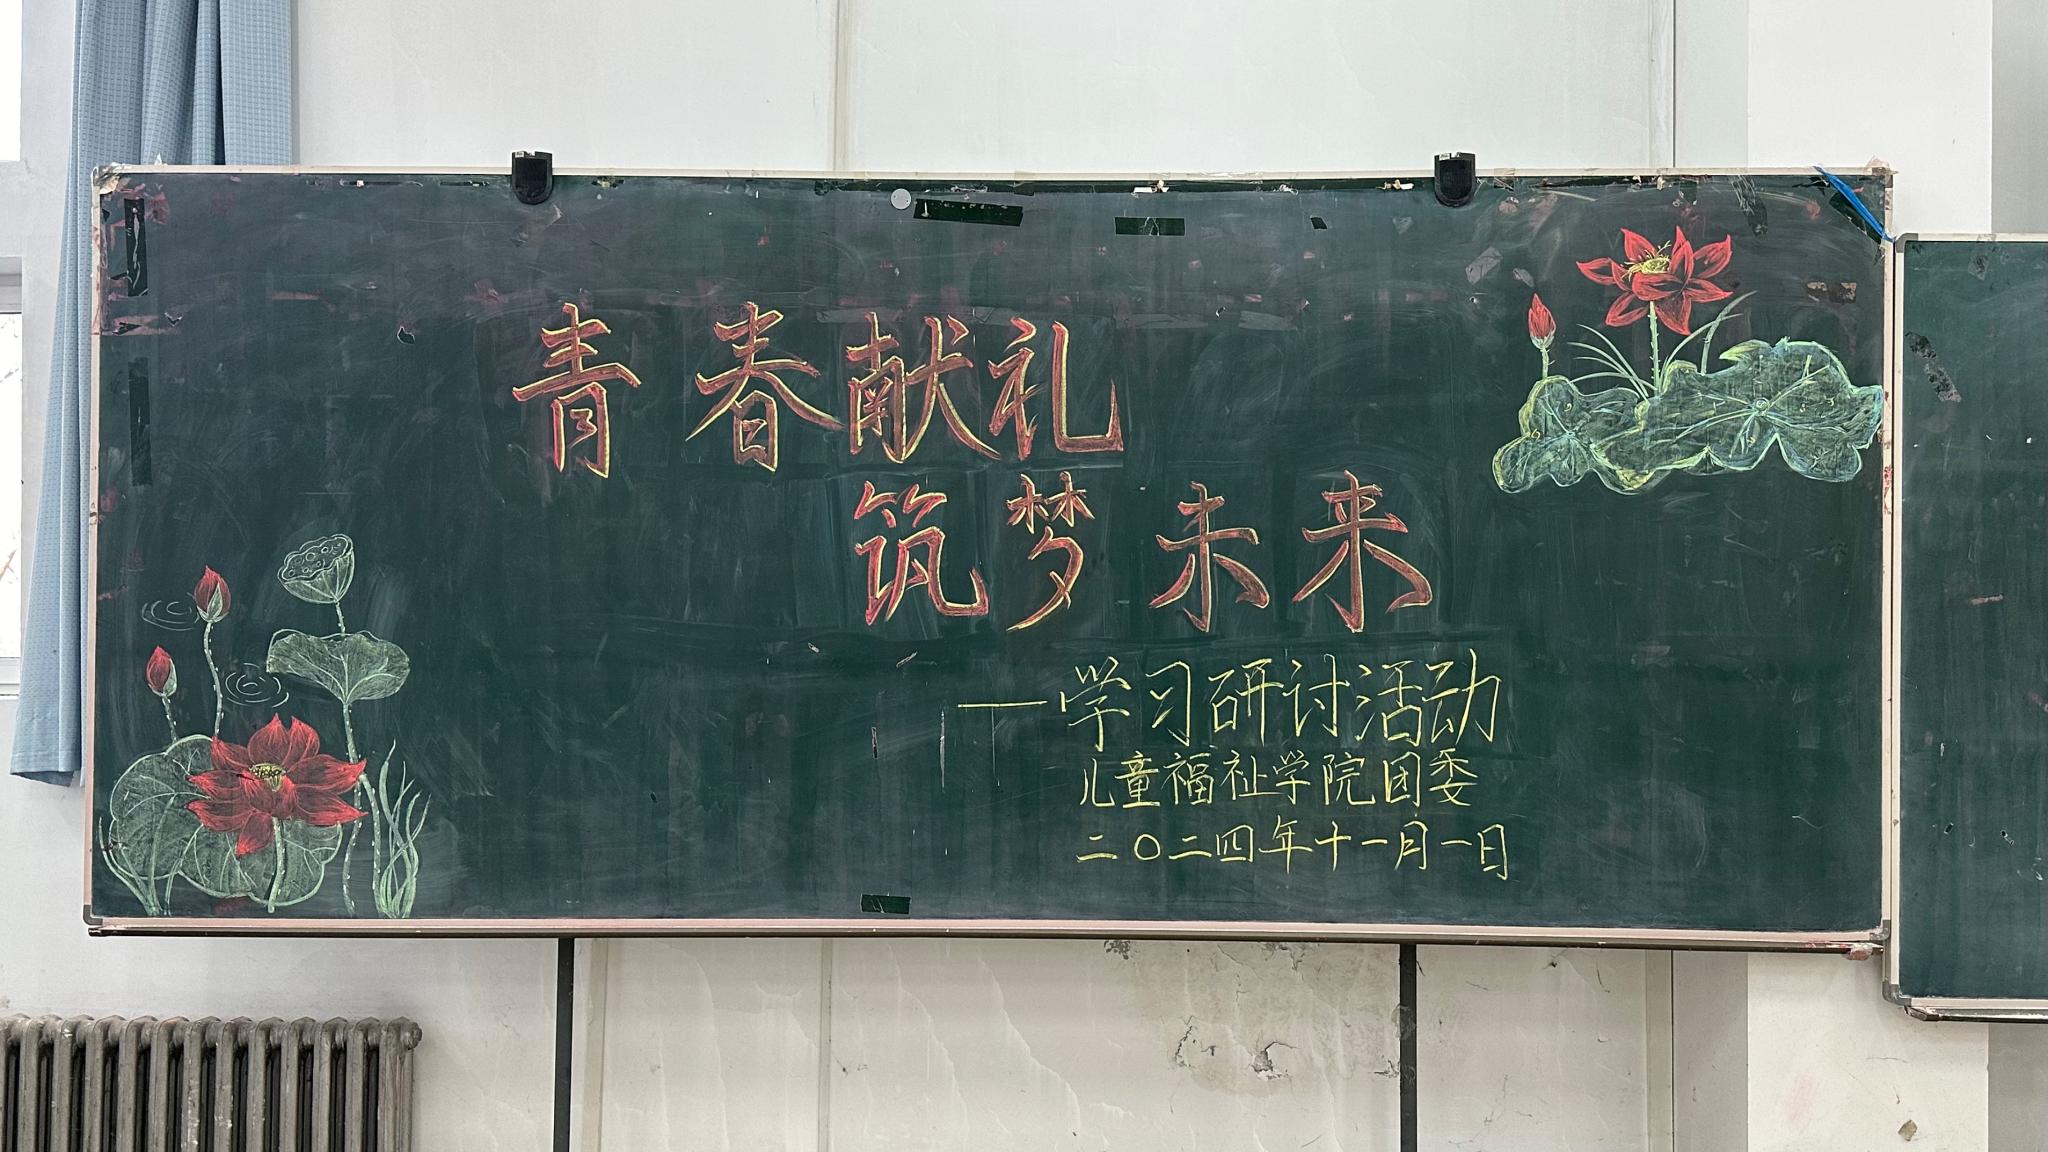 青春献礼
筑梦未来
——学习研讨活动
儿童福祉学院团委
二〇二四年十一月一日